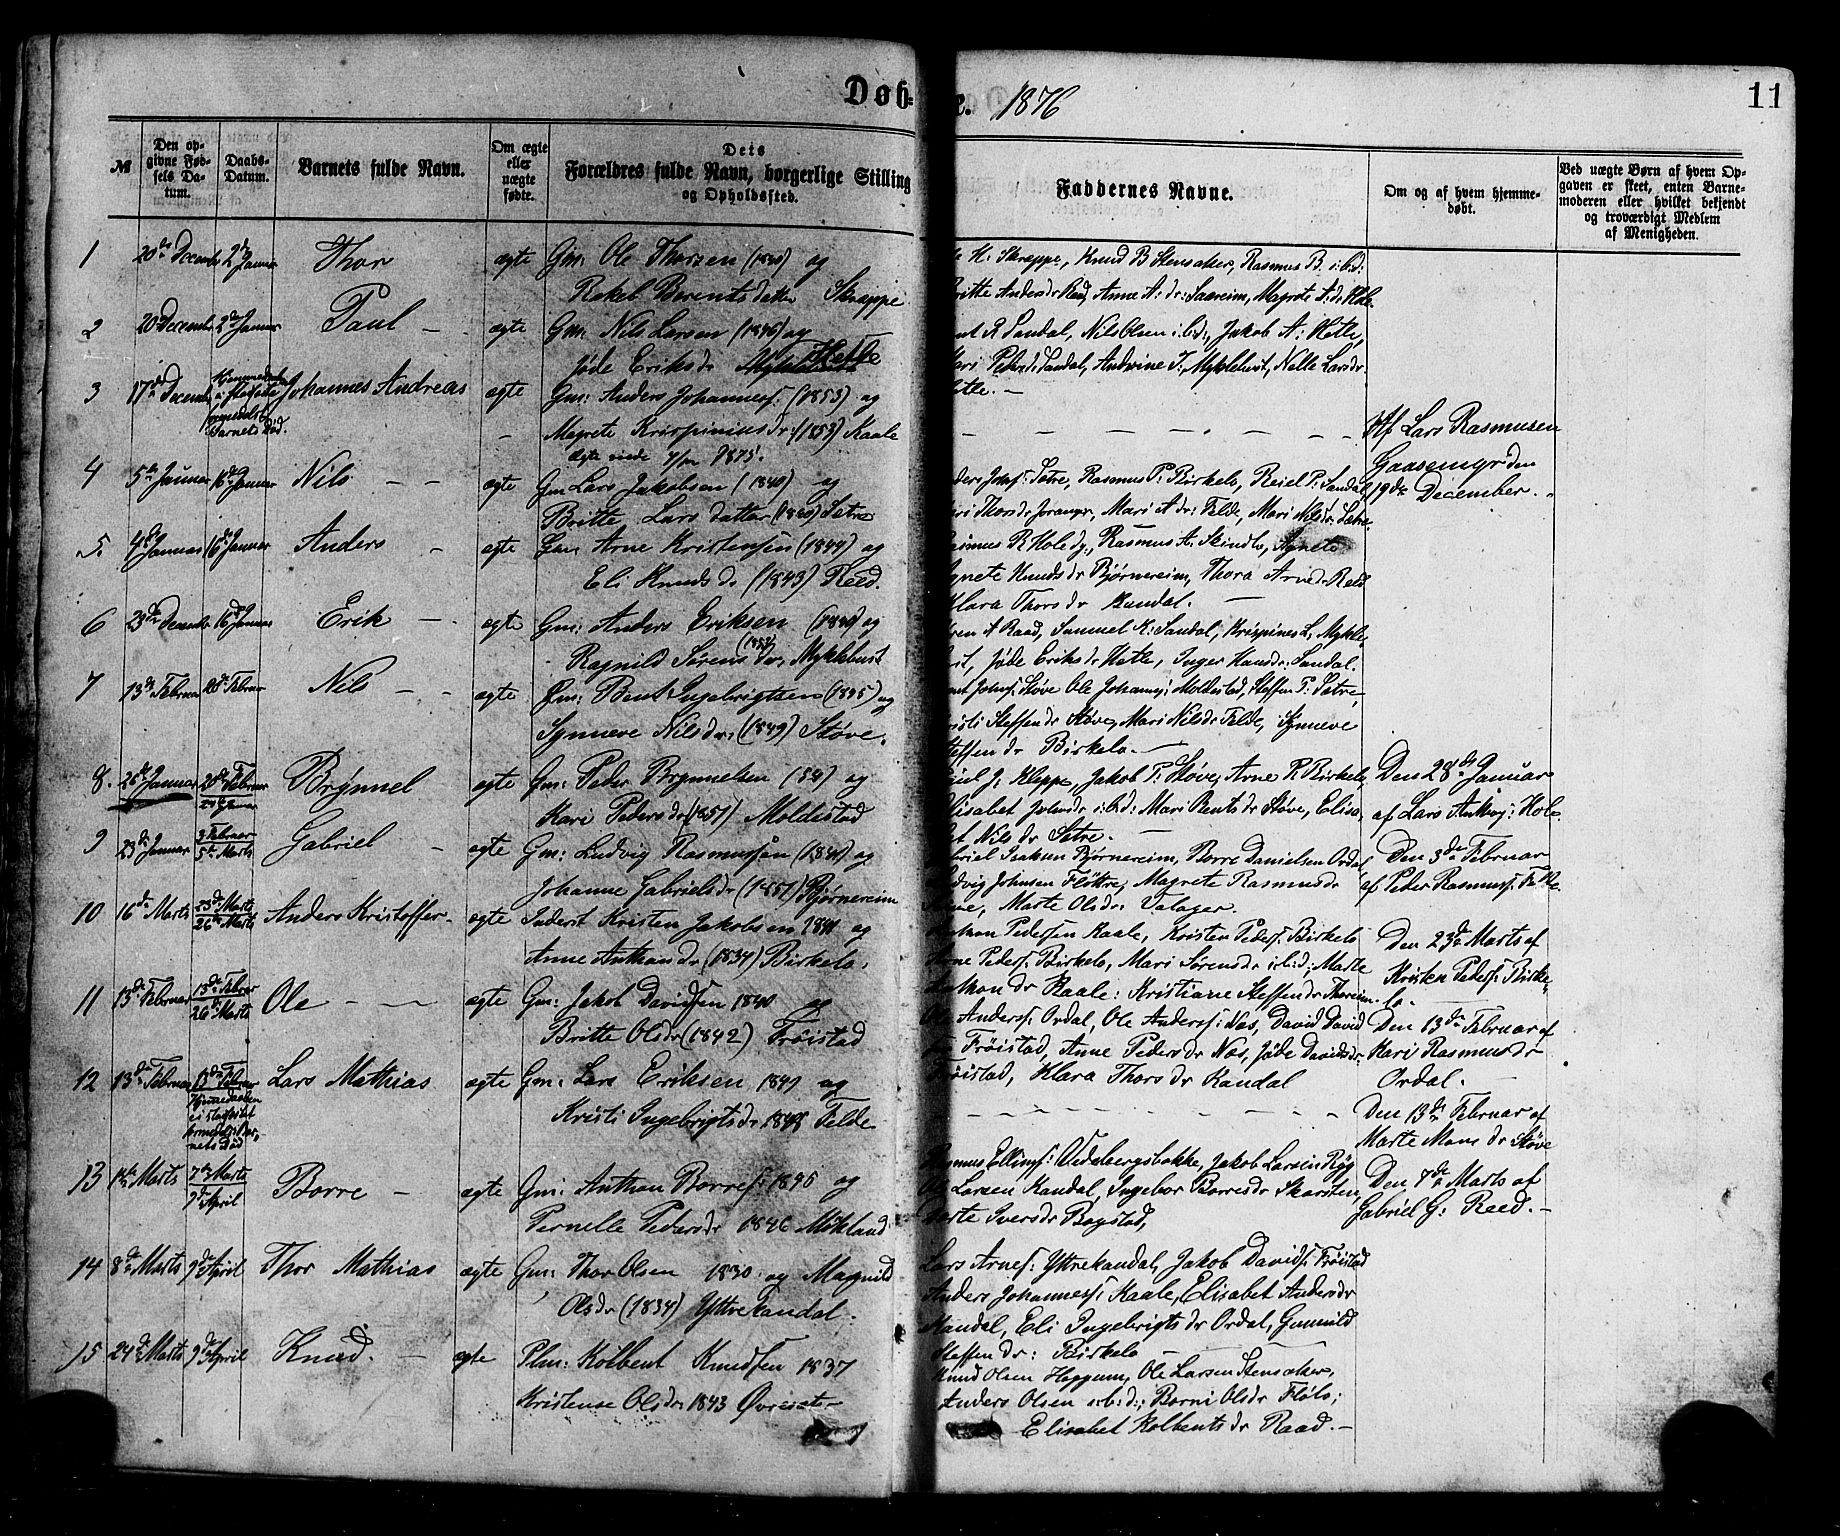 Døb-
e. 1876
11
№
Den op-
givne Fød-
sels Da-
tum.
Daabs-
Datum.
Barnets fulde Navn.
Om ægte
eller
uægte
fødte.
Dets
Forældres fulde Navn, borgerlige Stilling
og Opholdssted.
Faddernes Navne.
Om og af hvem hjemme-
døbt.
Ved uægte Børn af hvem Op-
gaven er skeet, enten Barne-
moderen eller hvilket bekjendt
og troværdigt Medlem
af Menigheden.
1 20de December 2de Januar Thor ægte Gm: Ole Thorsen (1840) og
Rakel Berentsdatter Skreppe
K: Skreppe, Knud B Stensaker, Rasmus B. i:b:d:
Britte Andersdr Raad, Anne A: dr: Saereim, Magrete A: dr Hole
2 20 December 2de Januar Paul - ægte Gm: Nils Larsen (1846) og
Jøde Eriksdr Hetle
R Sandal, Nils Olsen i:b:d:, Jakob A: Hetle,
Mari Peders: Sandal, Andrine J: Myklebust, Nille Larsdr
Hetle. -
3 17de December Johannes Andreas ægte Gm: Anders Johannesf. (1853) og
Magrete Krispiniusdr (1853) Kaale
Ægte viede 1875.
Barnets Død.
Af Lars Rasmusen
Gaasemyr den
19de December.
4 5te Januar 16de Januar Nils - - ægte Gm Lars Jakobsen (1840) og
Britte Larsdatter (1840) Sætre
Anders Josef: Sætre, Rasmus P: Birkelo, Reiel P: Sandal,
Mari Thorsdr Jorangr, Mari A dr: Felde, Mari Nilsdr: Sætre
5. 4de Januar 16de Januar Anders - ægte Gm: Arne Kristensen (1844) og
Eli Knudsdr (1843) Reed.
Rasmus R Hole dg, Rasmus A. Skindlo, Agnete
Agnete Knudsdr Bjørnereim, Thora Arnedr Reed
Klara Thorsdr Kandal. -
6 23de Decembr 16de Januar Erik - ægte Gm: Anders Eriksen (1840) og
Ragnild Sørensdr: Myklebust
A Raad, Samuel K: Sandal, Krispines L. Mykle-
bust, Jøde Eriksdr Hetle, Inger Hansdr: Sandal.
7 13de Februar 20de Februar Nils - - ægte Gm: Bent Ingebrigtsen (1845) og
Synneve Nilsdr: (1849) Støve.
Bent Johnsf: Støve Ole Johannes: Moldestad, Steffen P: Sætre,
Kristi Steffendr Støve, Mari Nilsdr Felde, Synneve
Steffendr Birkelo. -
8. 25de Januar 20de Februar Brynnel ægte Gm: Peder Brynnelsen (54) og
Kari Pedersdr (1851) Moldestad
J: Kleppe, Jakob P: Støve, Arne R. Birkelo,
Elisabet Johndr: i:b:d: Mari Bentsdr Støve, Elisa-
bet Nilsdr Sætre. -
Den 28de Januar
af Lars Antoni: Hole.
9 23de Januar 3 Februar
5te Marts Gabriel - ægte Gm: Ludvig Rasmussen (1841) og
Johanne Gabrielsdr (1851) Bjørnereim
Gabriel Isaksen Bjørnereim, Borre Danielsen Ordal,
Ludvig Johnsen Fløttre, Magrete Rasmusdr
Marte Olsdr: Valager.
Den 3de Februar
af Peder Rasmusf: Felde.
10 16de Marts 23de Marts
26de Marts Anders Kristoffer - ægte Inderst Kristen Jakobsen 1841 og
Anne Anthondr (1834) Birkelo,
Anthon Pedersen Kaale, Kristen Pedersf. Birkelo
Arne Pedersf: Birkelo, Mari Sørensdr i:b:d: Marte
Anthondr Kaale: Kristiane Steffendr Thoreim.
Den 23de Marts af
Kristen Pedersf: Birke-
lo. -
11 13de Februar 13de Februar
26de Marts Ole - - ægte Gm: Jakob Davidsen 1840 og
Britte Olsdr (1842) Frøistad
Ole Andersf. Ordal, Ole Andersf: Nos, David David
Frøistad, Anne Pedersdr Nos, Jøde Davidsdr.
Frøistad, Klara Thorsdr Kandal
Den 13de Februar af
Kari Rasmusdr
Ordal. -
12 13de Februar 13de Februar
Hjemmedaaben
ei stadfæstet
formedelst Bar-
nets Død Lars Mathias ægte Gm: Lars Eriksen 1849 og
Kristi Ingebrigtsdr 1848 Felde
Den 13de Februar af
Marte Monsdr Støve
13 1ste Marts 7de Marts
9de April Borre - ægte Gm: Anthon Borresf: 1846 og
Pernelle Pedersdr 1846 Mokland
Rasmus Ellingsf: Vedebergsbakke, Jakob Larsen Ryg
Larsen Kandal, Ingebor Borresdr Skarsten,
Marte Iversdr Bogstad,
Den 7de Marts af
Gabriel G: Reed. -
14 8de Marts 9de April Thor Mathias ægte Gm: Thor Olsen 1830 og Magnild
Olsdr (1834) Yttrekandal.
Lars Arnesf: Yttrekandal, Jakob Davidsf: Frøistad
Anders Johannesf: Kaale, Elisabet Andersdr
Kandal, Eli Ingebrigtsdr Ordal, Gunnild
Steffendr: Birkelo
15 24de Marts 9de April Knud. - ægte Plm: Kolbent Knudsen 1837
Kristense Olsdr 1843 Øvreset -
Knud Olsen Heggum, Ole Larsen Stensaker,
Anders Olsen i:b:d:, Borni Olsdr Fløto;
Elisabet Kolbentsdr Raad. -